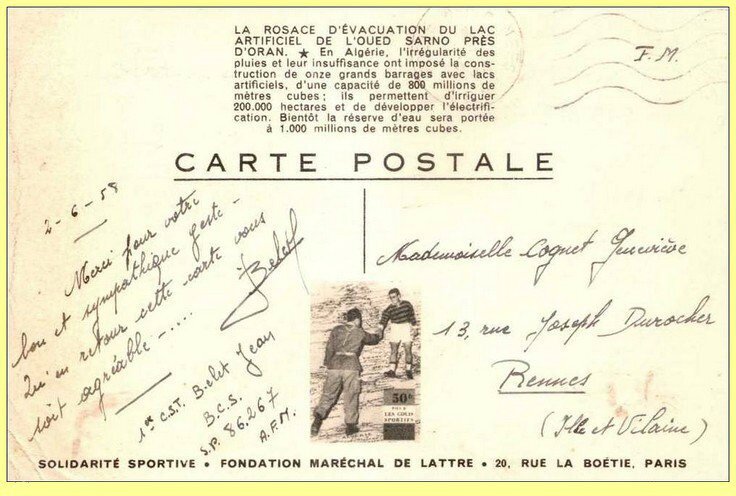 LA ROSACE D'ÉVACUATION DU LAC
ARTIFICIEL DE L'OUED SARNO PRÈS
D'ORAN. ★ En Algérie, l'irrégularité des
pluies et leur insuffisance ont imposé la cons-
truction de onze grands barrages avec lacs
artificiels, d'une capacité de 800 millions de
mètres cubes ; ils permettent d'irriguer
200.000 hectares et de développer l'électrifi-
cation. Bientôt la réserve d'eau sera portée
à 1.000 millions de mètres cubes.
F.M.
CARTE POSTALE
2-6-58
Merci pour votre
bon et sympathique geste -
Qu'en retour cette carte vous
soit agréable -....
Belet
1er C.S.T. Belet Jean
B.C.S.
S.P. 86.267
A.F.N.
Mademoiselle Cognet Geneviève
13, rue Joseph Durocher
Rennes
(Ille et Vilaine)
50f
POUR
LES COLIS
SPORTIFS
SOLIDARITÉ SPORTIVE • FONDATION MARÉCHAL DE LATTRE • 20, RUE LA BOÉTIE, PARIS